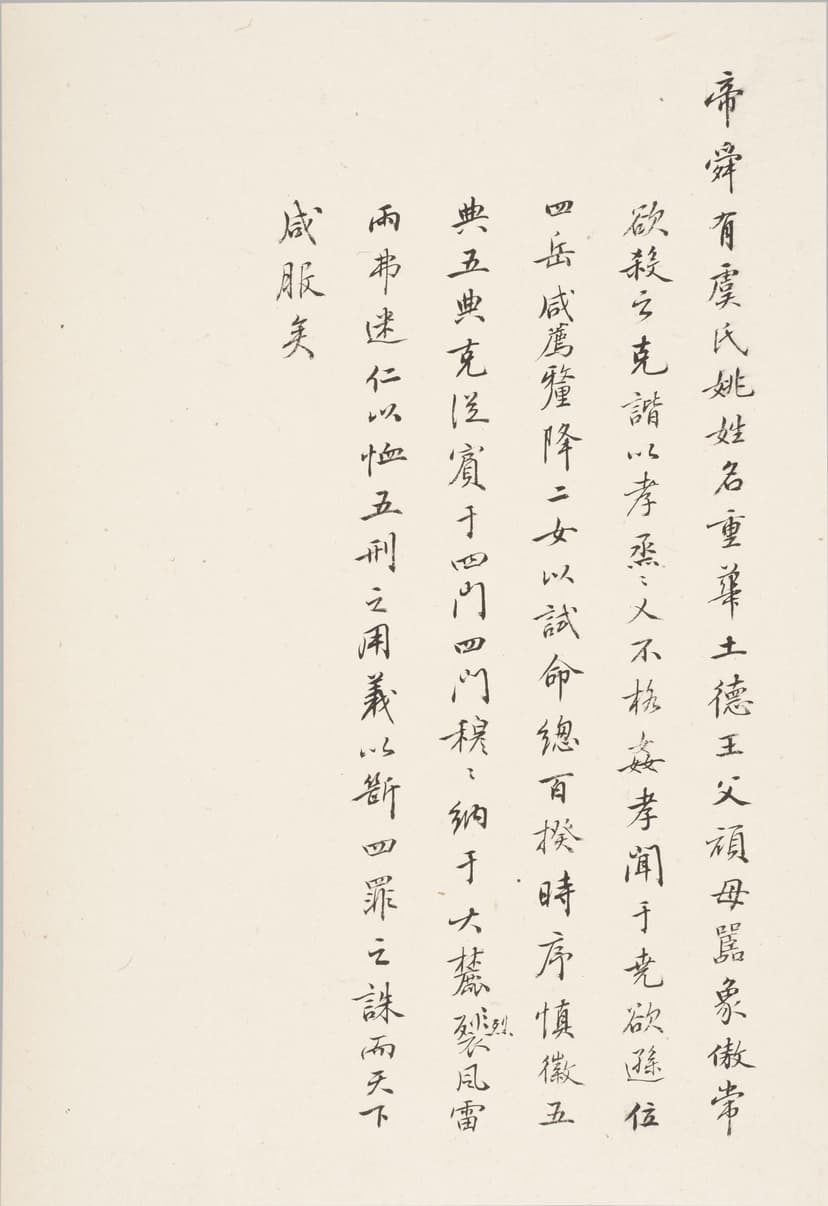 帝舜有虞氏姚姓名重華土德王父頑母嚚象傲常
欲殺之克諧以孝烝〻乂不格姦孝聞于堯欲遜位
四岳咸薦釐降二女以試命總百揆時序慎徽五
典五典克從賓于四門四門穆〻納于大麓裂烈風雷
雨弗迷仁以恤五刑之用義以斷四罪之誅而天下
咸服矣